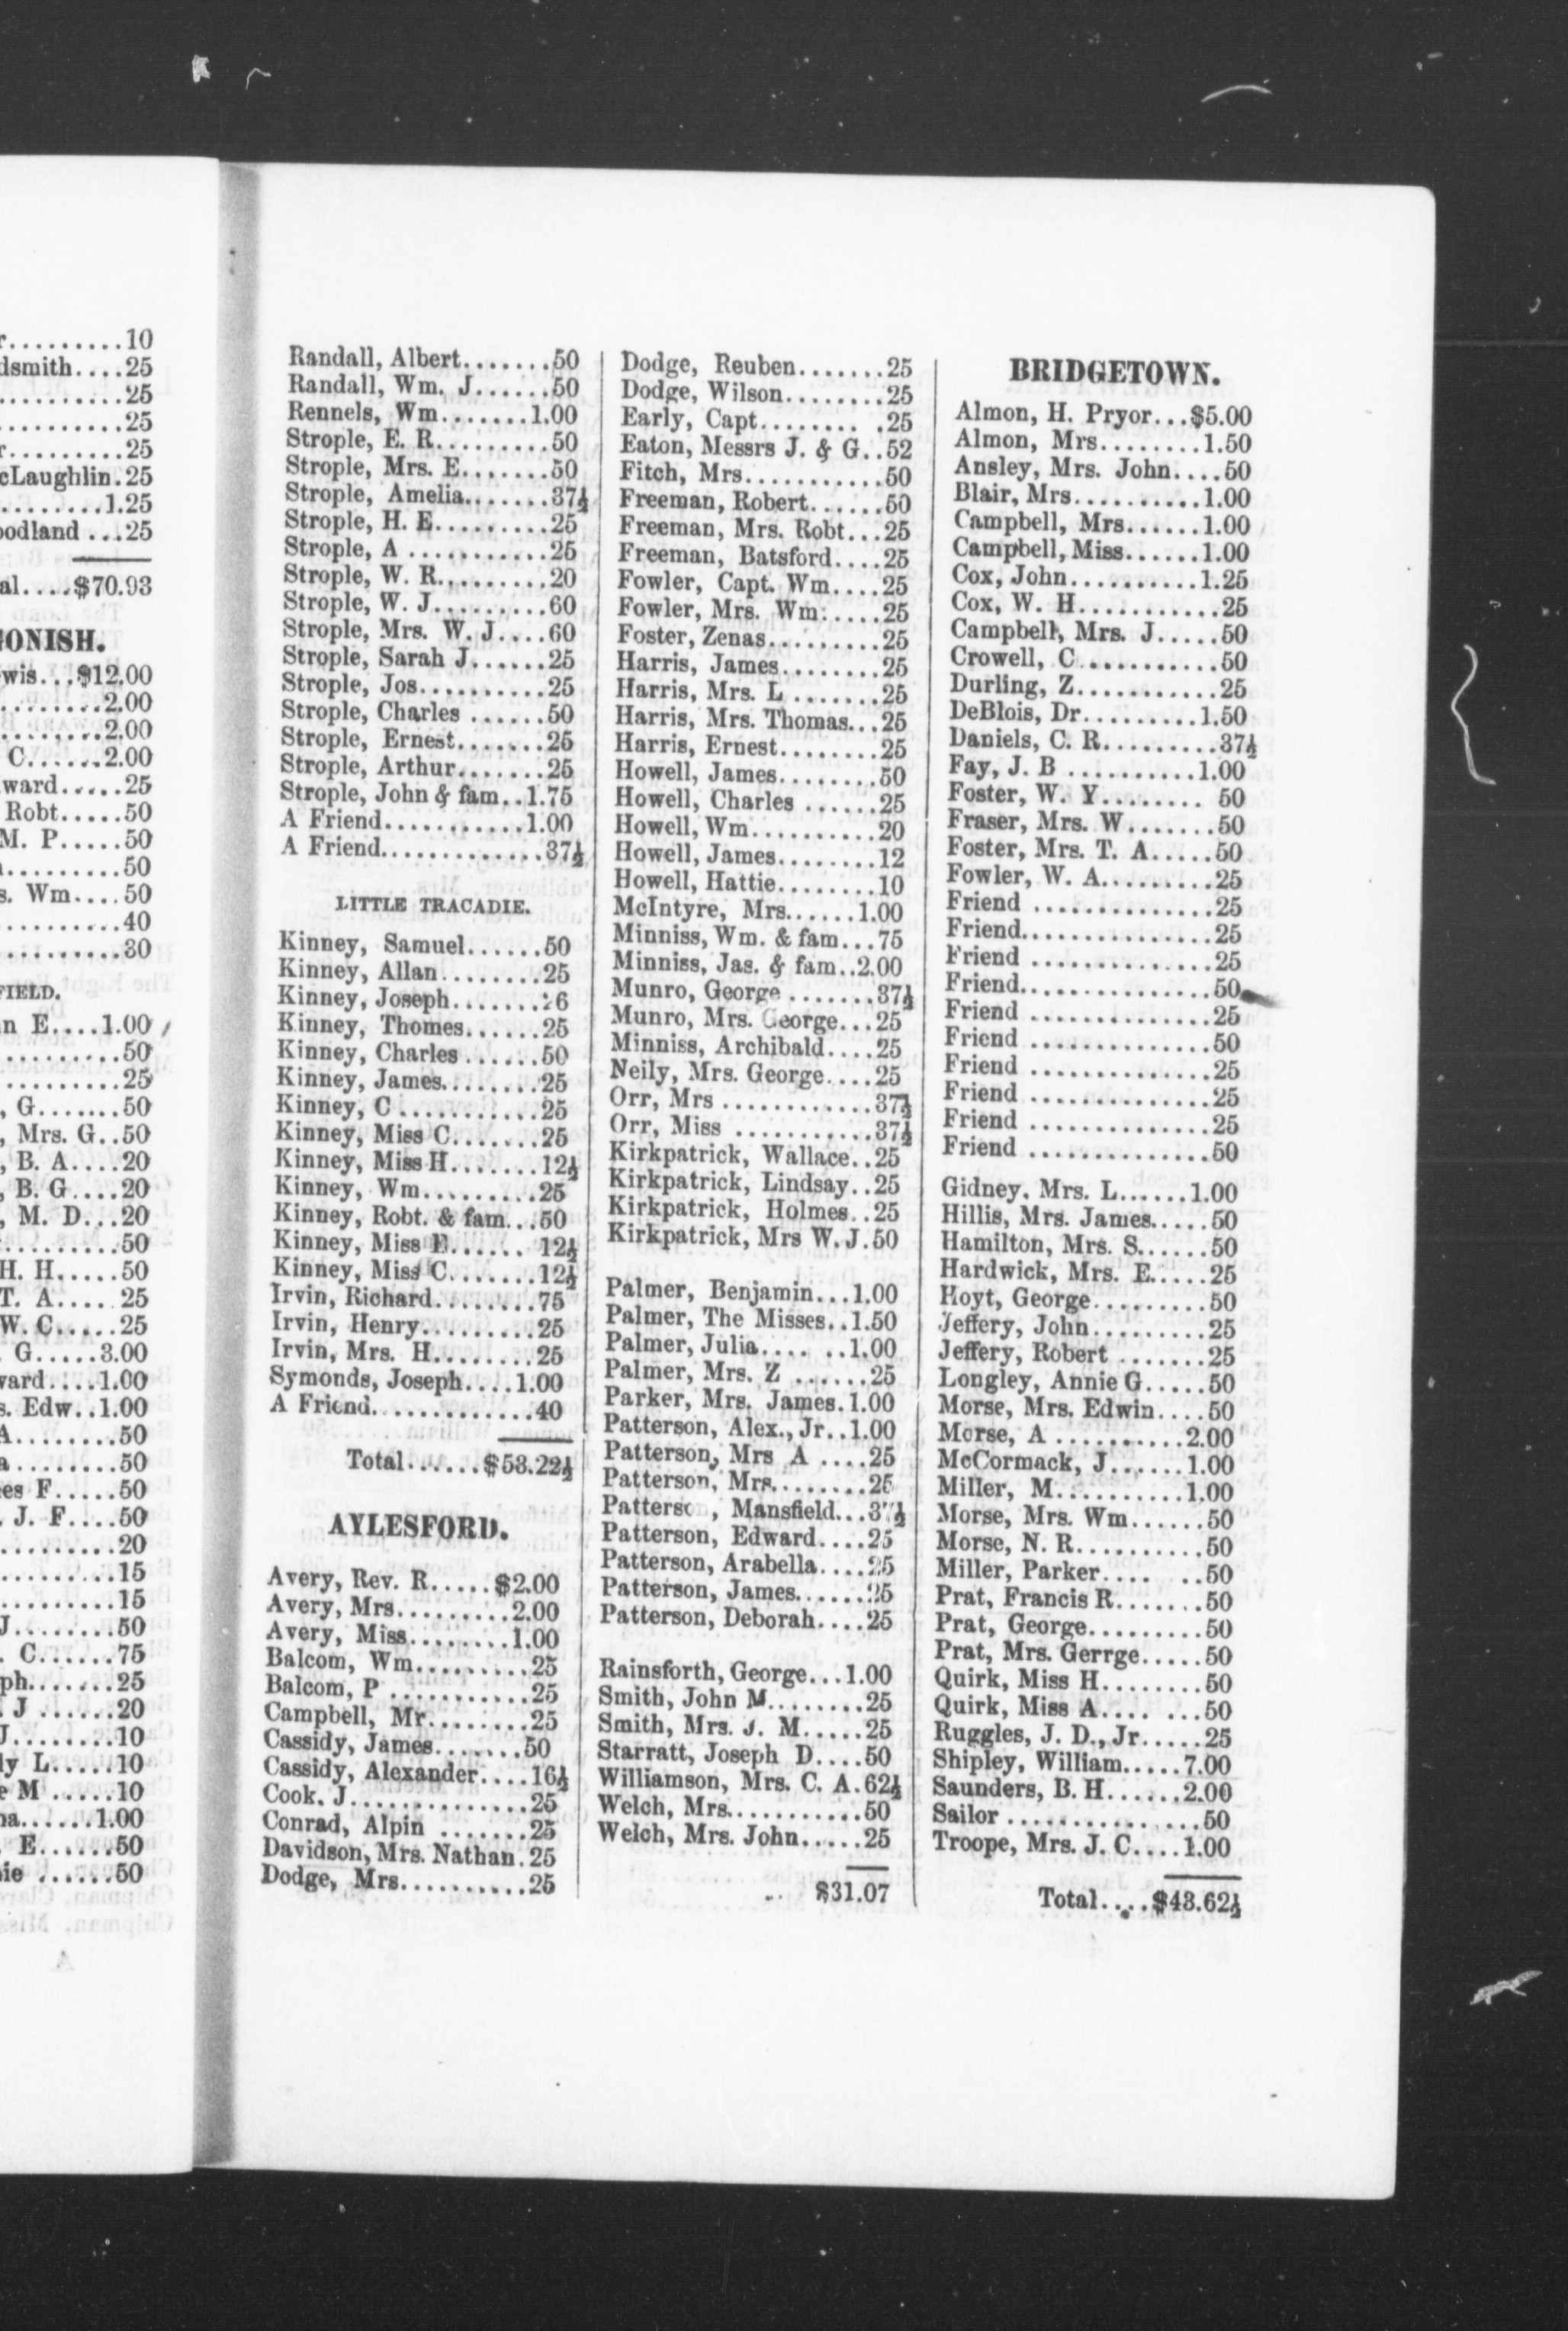 r.........10
dsmith....25
...........25
...........25
r.........25
cLaughlin.25
.........1.25
oodland ...25
al.....$70.93
ONISH.
wis...$12.00
........2.00
........2.00
C......2.00
ward.....25
Robt.....50
M. P.....50
.........50
s. Wm....50
..........40
..........30
FIELD.
n E....1.00
..........50
..........25
, G.......50
, Mrs. G..50
, B. A....20
, B. G....20
, M. D...20
..........50
H. H.....50
T. A.....25
W. C.....25
. G.....3.00
ward....1.00
s. Edw..1.00
A.........50
a.........50
es F.....50
. J. F....50
..........20
..........15
..........15
J.........50
. C......75
ph.......25
. J ......20
J.........10
ly L.....10
e M .....10
na......1.00
. E......50
ie ......50
Randall, Albert.......50
Randall, Wm. J......50
Rennels, Wm.......1.00
Strople, E. R.........50
Strople, Mrs. E.......50
Strople, Amelia.......37½
Strople, H. E.........25
Strople, A ...........25
Strople, W. R.........20
Strople, W. J.........60
Strople, Mrs. W. J....60
Strople, Sarah J......25
Strople, Jos..........25
Strople, Charles ......50
Strople, Ernest.......25
Strople, Arthur.......25
Strople, John & fam..1.75
A Friend...........1.00
A Friend.............37½
LITTLE TRACADIE.
Kinney, Samuel......50
Kinney, Allan........25
Kinney, Joseph.......26
Kinney, Thomes......25
Kinney, Charles ......50
Kinney, James........25
Kinney, C ...........25
Kinney, Miss C.......25
Kinney, Miss H.......12½
Kinney, Wm.........25
Kinney, Robt. & fam...50
Kinney, Miss E...... 12½
Kinney, Miss C.......12½
Irvin, Richard........75
Irvin, Henry.........25
Irvin, Mrs. H........25
Symonds, Joseph....1.00
A Friend.............40
Total......$53.22½
AYLESFORD.
Avery, Rev. R.....$2.00
Avery, Mrs.........2.00
Avery, Miss........1.00
Balcom, Wm.........25
Balcom, P ...........25
Campbell, Mr........25
Cassidy, James.......50
Cassidy, Alexander....16½
Cook. J..............25
Conrad, Alpin .......25
Davidson, Mrs. Nathan.25
Dodge, Mrs..........25
Dodge, Reuben.......25
Dodge, Wilson........25
Early, Capt........ .25
Eaton, Messrs J. & G..52
Fitch, Mrs...........50
Freeman, Robert......50
Freeman, Mrs. Robt...25
Freeman, Batsford....25
Fowler, Capt. Wm....25
Fowler, Mrs. Wm.....25
Foster, Zenas.........25
Harris, James........25
Harris, Mrs. L .......25
Harris, Mrs. Thomas...25
Harris, Ernest........25
Howell, James........50
Howell, Charles ......25
Howell, Wm..........20
Howell, James........12
Howell, Hattie........10
McIntyre, Mrs......1.00
Minniss, Wm. & fam...75
Minniss, Jas. & fam..2.00
Munro, George .......37½
Munro, Mrs. George...25
Minniss, Archibald....25
Neily, Mrs. George....25
Orr, Mrs ............37½
Orr, Miss ...........37½
Kirkpatrick, Wallace..25
Kirkpatrick, Lindsay..25
Kirkpatrick, Holmes..25
Kirkpatrick, Mrs W. J.50
Palmer, Benjamin...1.00
Palmer, The Misses..1.50
Palmer, Julia.... ..1.00
Palmer, Mrs. Z ......25
Parker, Mrs. James.1.00
Patterson, Alex., Jr..1.00
Patterson, Mrs A ....25
Patterson, Mrs........25
Patterso , Mansfield...37½
Patterson, Edward....25
Patterson, Arabella....25
Patterson, James......25
Patterson, Deborah....25
Rainsforth, George...1.00
Smith, John M........25
Smith, Mrs. J. M.....25
Starratt, Joseph D....50
Williamson, Mrs. C. A.62½
Welch, Mrs...........50
Welch, Mrs. John.....25
.. $31.07
BRIDGETOWN.
Almon, H. Pryor...$5.00
Almon, Mrs.........1.50
Ansley, Mrs. John....50
Blair, Mrs...........1.00
Campbell, Mrs......1.00
Campbell, Miss......1.00
Cox, John...........1.25
Cox, W. H...........25
Campbell, Mrs. J.....50
Crowell, C...........50
Durling, Z............25
DeBlois, Dr.........1.50
Daniels, C. R.........37½
Fay, J. B ..........1.00
Foster, W. Y........ 50
Fraser, Mrs. W.......50
Foster, Mrs. T. A.....50
Fowler, W. A.........25
Friend ...............25
Friend................25
Friend ...............25
Friend................50
Friend ...............25
Friend ...............50
Friend ...............25
Friend ...............25
Friend ...............25
Friend ...............50
Gidney. Mrs. L......1.00
Hillis, Mrs. James.....50
Hamilton, Mrs. S......50
Hardwick, Mrs. E.....25
Hoyt, George.........50
Jeffery, John.........25
Jeffery, Robert .......25
Longley, Annie G.....50
Morse, Mrs. Edwin....50
Morse, A ..........2.00
McCormack, J......1.00
Miller, M..........1.00
Morse, Mrs. Wm......50
Morse, N. R..........50
Miller, Parker.... ..50
Prat, Francis R.......50
Prat, George.........50
Prat, Mrs. Gerrge.....50
Quirk, Miss H........50
Quirk, Miss A.... ...50
Ruggles, J. D., Jr.....25
Shipley, William.....7.00
Saunders, B. H......2.00
Sailor ................50
Troope, Mrs. J. C....1.00
Total....$43.62½